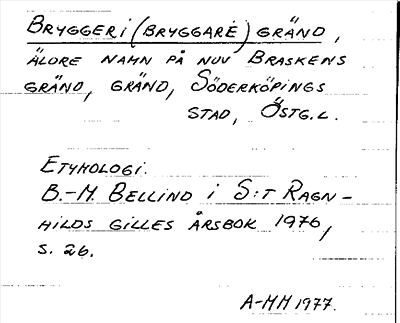 BRYGGERI (BRYGGARE) GRÄND,
ÄLDRE NAMN PÅ NUV BRASKENS
GRÄND, GRÄND, SÖDERKÖPINGS
STAD, ÖSTG.L.
ETYMOLOGI.
B.-M. BELLIND I S:T RAGN-
HILDS GILLES ÅRSBOK 1976,
S. 26.
A-MM 1977.